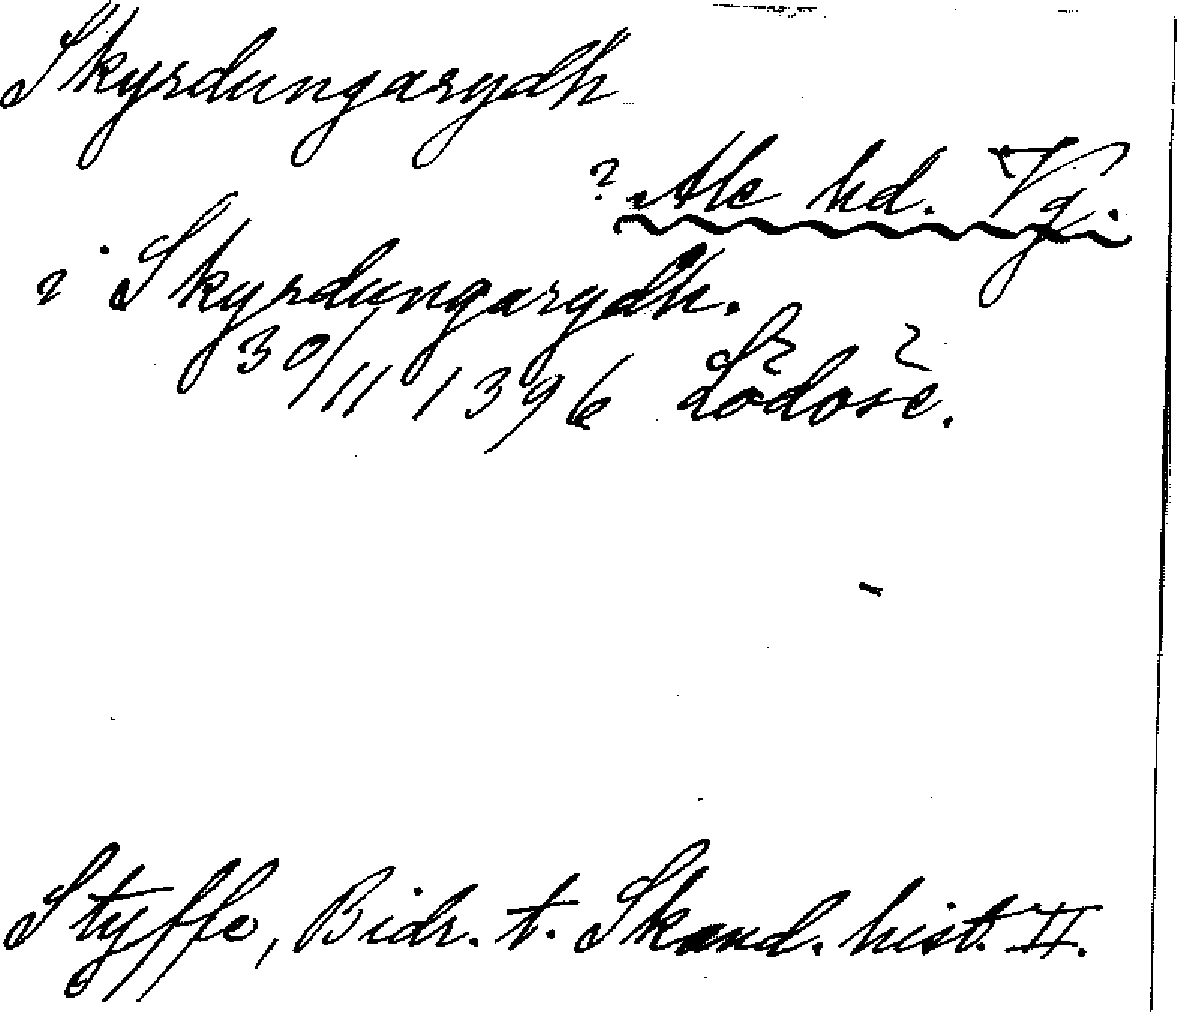 Skyrdungarydh
? Ale hd. Vg.
i Skyrdungarydh.
30/11 1396 Lödose.
Styffe, Bidr. t. Skand. hist. II.